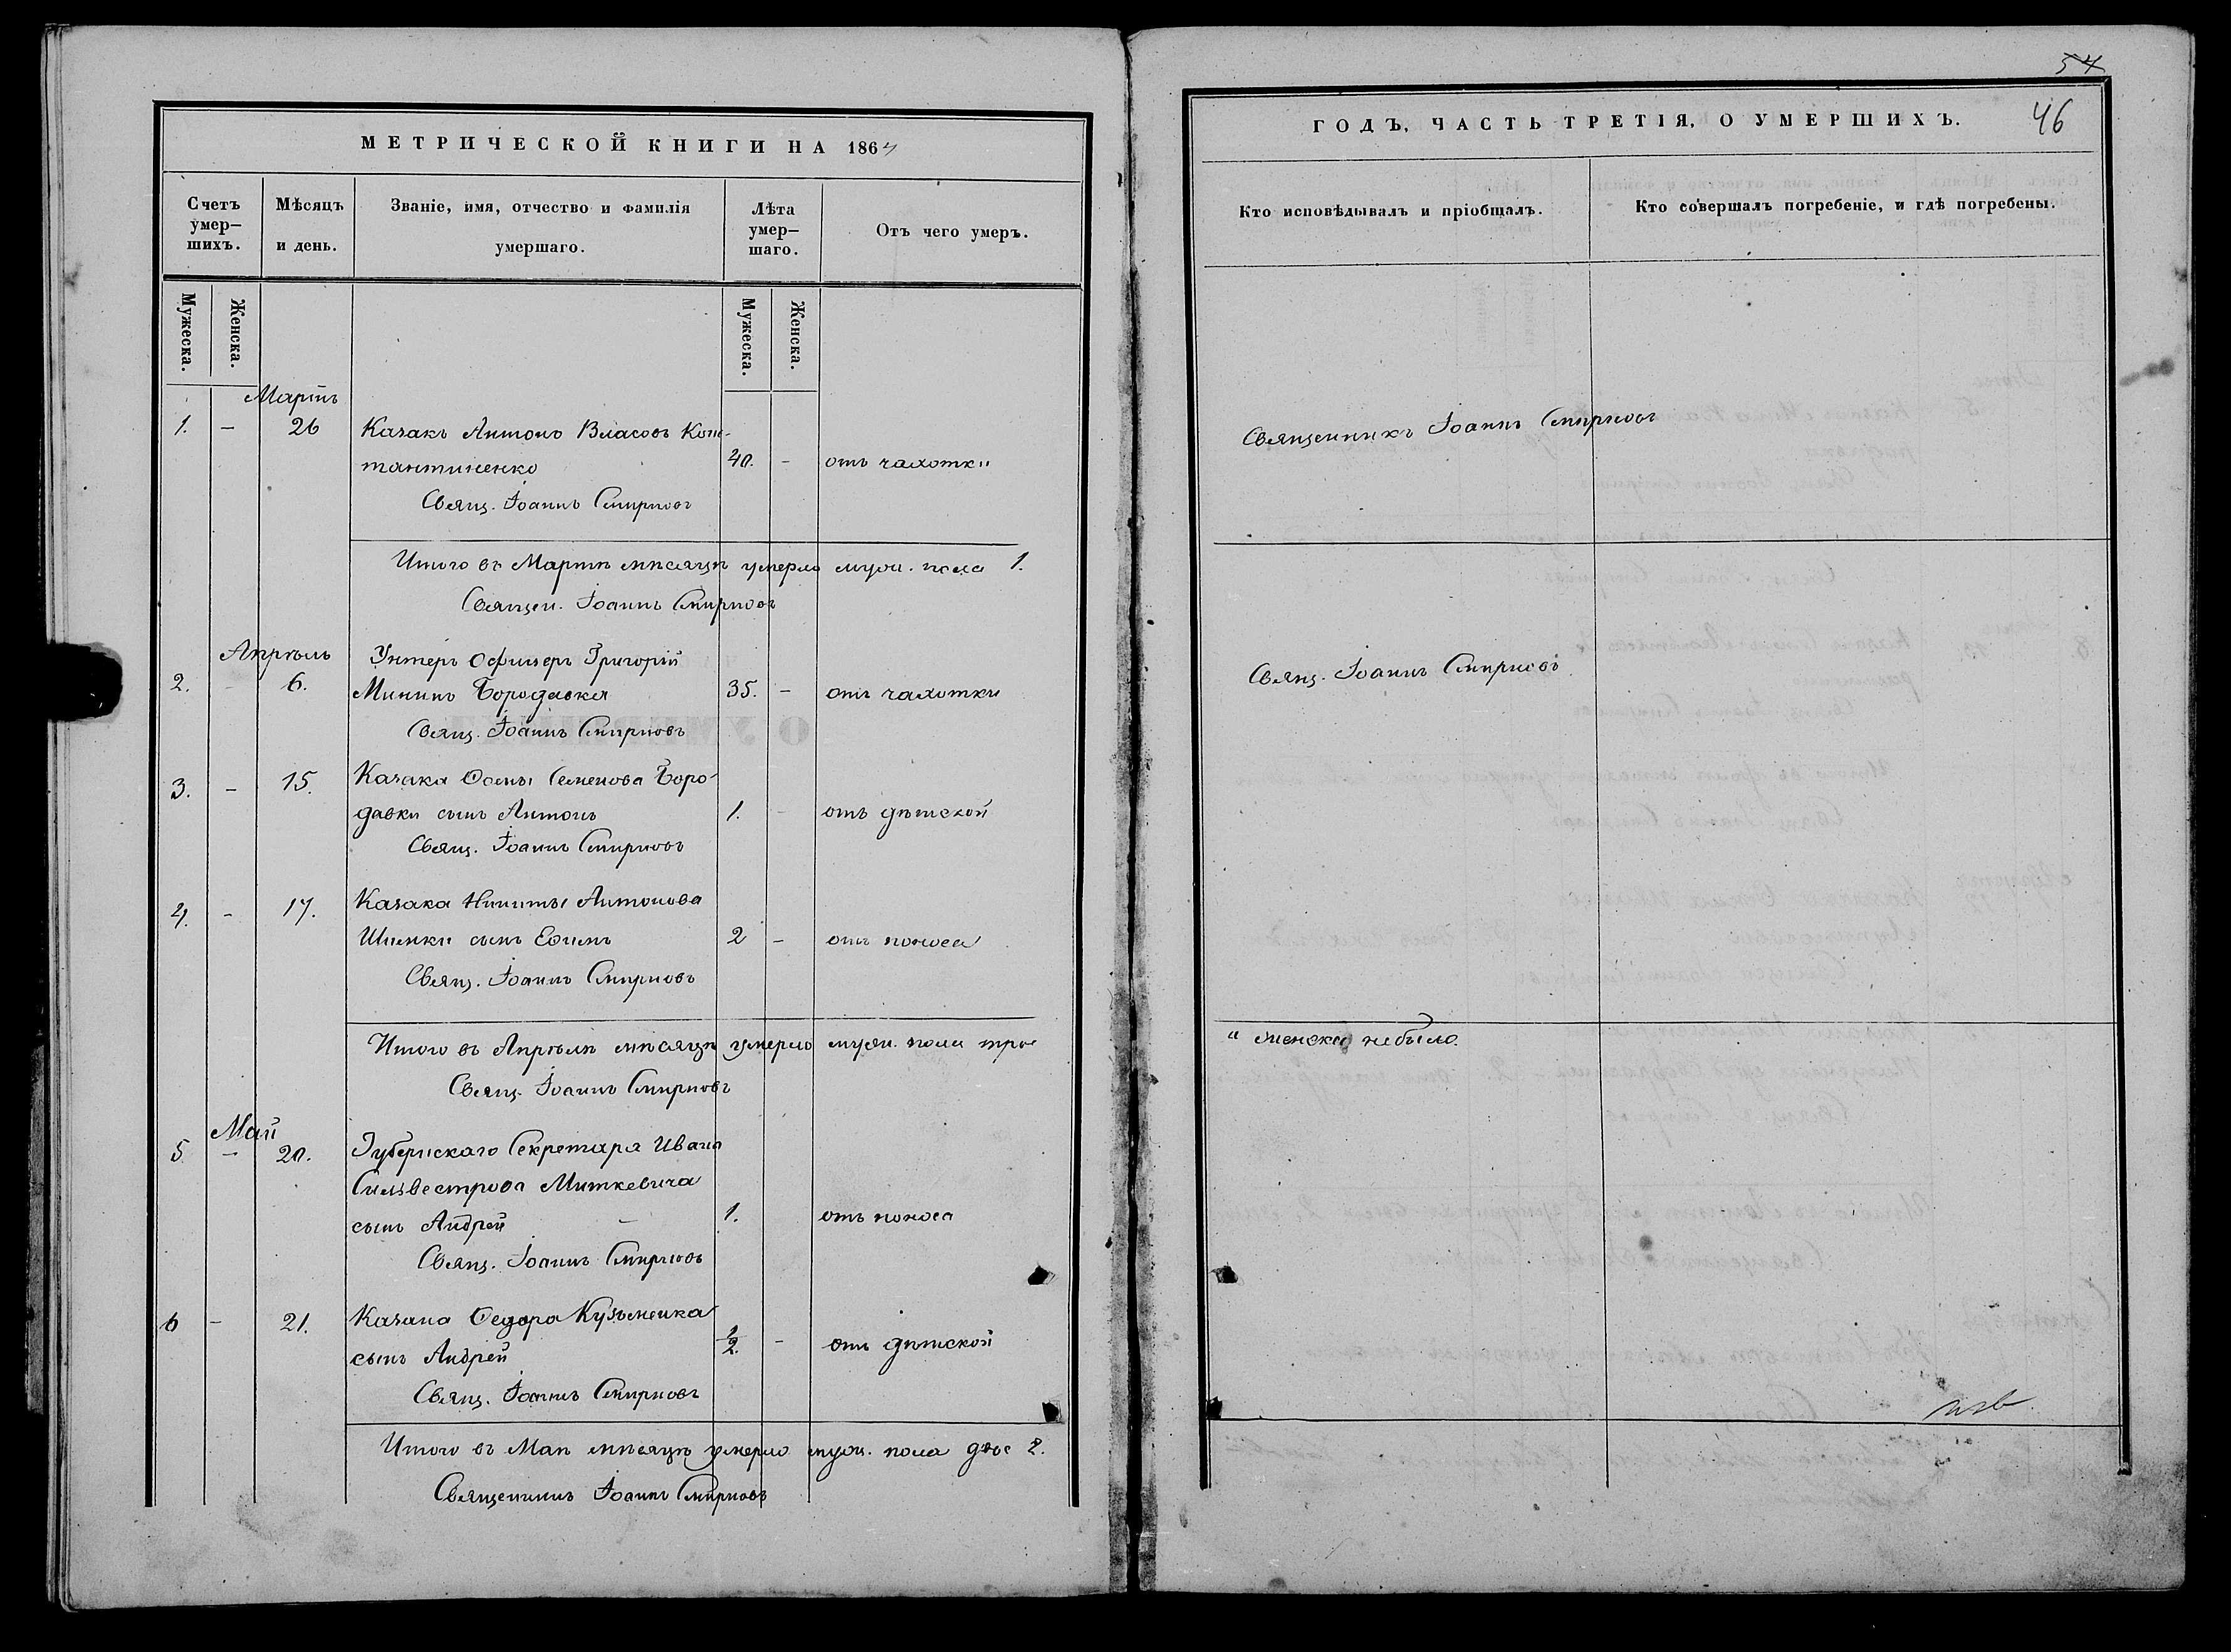 МЕТРИЧЕСКОЙ КНИГИ НА 1864
Счетъ умер-шихъ.
Мѣсяцъ и день.
Званіе, имя, отчество и фамилія умершаго.
Лѣта умер-шаго.
Отъ чего умеръ.
Мужеска.
Женска.
Мужеска.
Женска.
Мартъ
1. - 26 Казакъ Антонъ Власовъ Конс-
тантиненко 40. - отъ чахотки
Свящ. Іоаннъ Смирновъ
Итого въ Мартѣ мѣсяцѣ умерло муж. пола 1.
Священ. Іоаннъ Смирновъ
Апрѣль Унтеръ Офицеръ Григорій
2. - 6. Мининъ Бородавка 35. - отъ чахотки
Свящ. Іоаннъ Смирновъ
3. - 15. Казака Ѳомы Семенова Боро-
давки сынъ Антонъ 1. - отъ дѣтской
Свящ. Іоаннъ Смирновъ
4. - 17. Казака Никиты Антонова
Шимки сынъ Ефимъ 2 - отъ поноса
Свящ. Іоаннъ Смирновъ
Итого въ Апрѣлѣ мѣсяцѣ умерло муж. пола трое
Свящ. Іоаннъ Смирновъ
Май
5 - 20. Губернскаго Секретаря Ивана
Сильвестрова Миткевича
сынъ Андрей - 1. отъ поноса
Свящ. Іоаннъ Смирновъ
6 - 21. Казака Ѳедора Кузьменка
сынъ Андрей 1/2. - отъ дѣтской
Свящ. Іоаннъ Смирновъ
Итого въ Маѣ мѣсяцѣ умерло муж. пола двое 2.
Священникъ Іоаннъ Смирновъ
54
ГОДЪ, ЧАСТЬ ТРЕТІЯ, О УМЕРШИХЪ. 46
Кто исповѣдывалъ и пріобщалъ.
Кто совершалъ погребеніе, и гдѣ погребены.
Священникъ Іоаннъ Смирновъ
Свящ. Іоаннъ Смирновъ
" женска небыло.